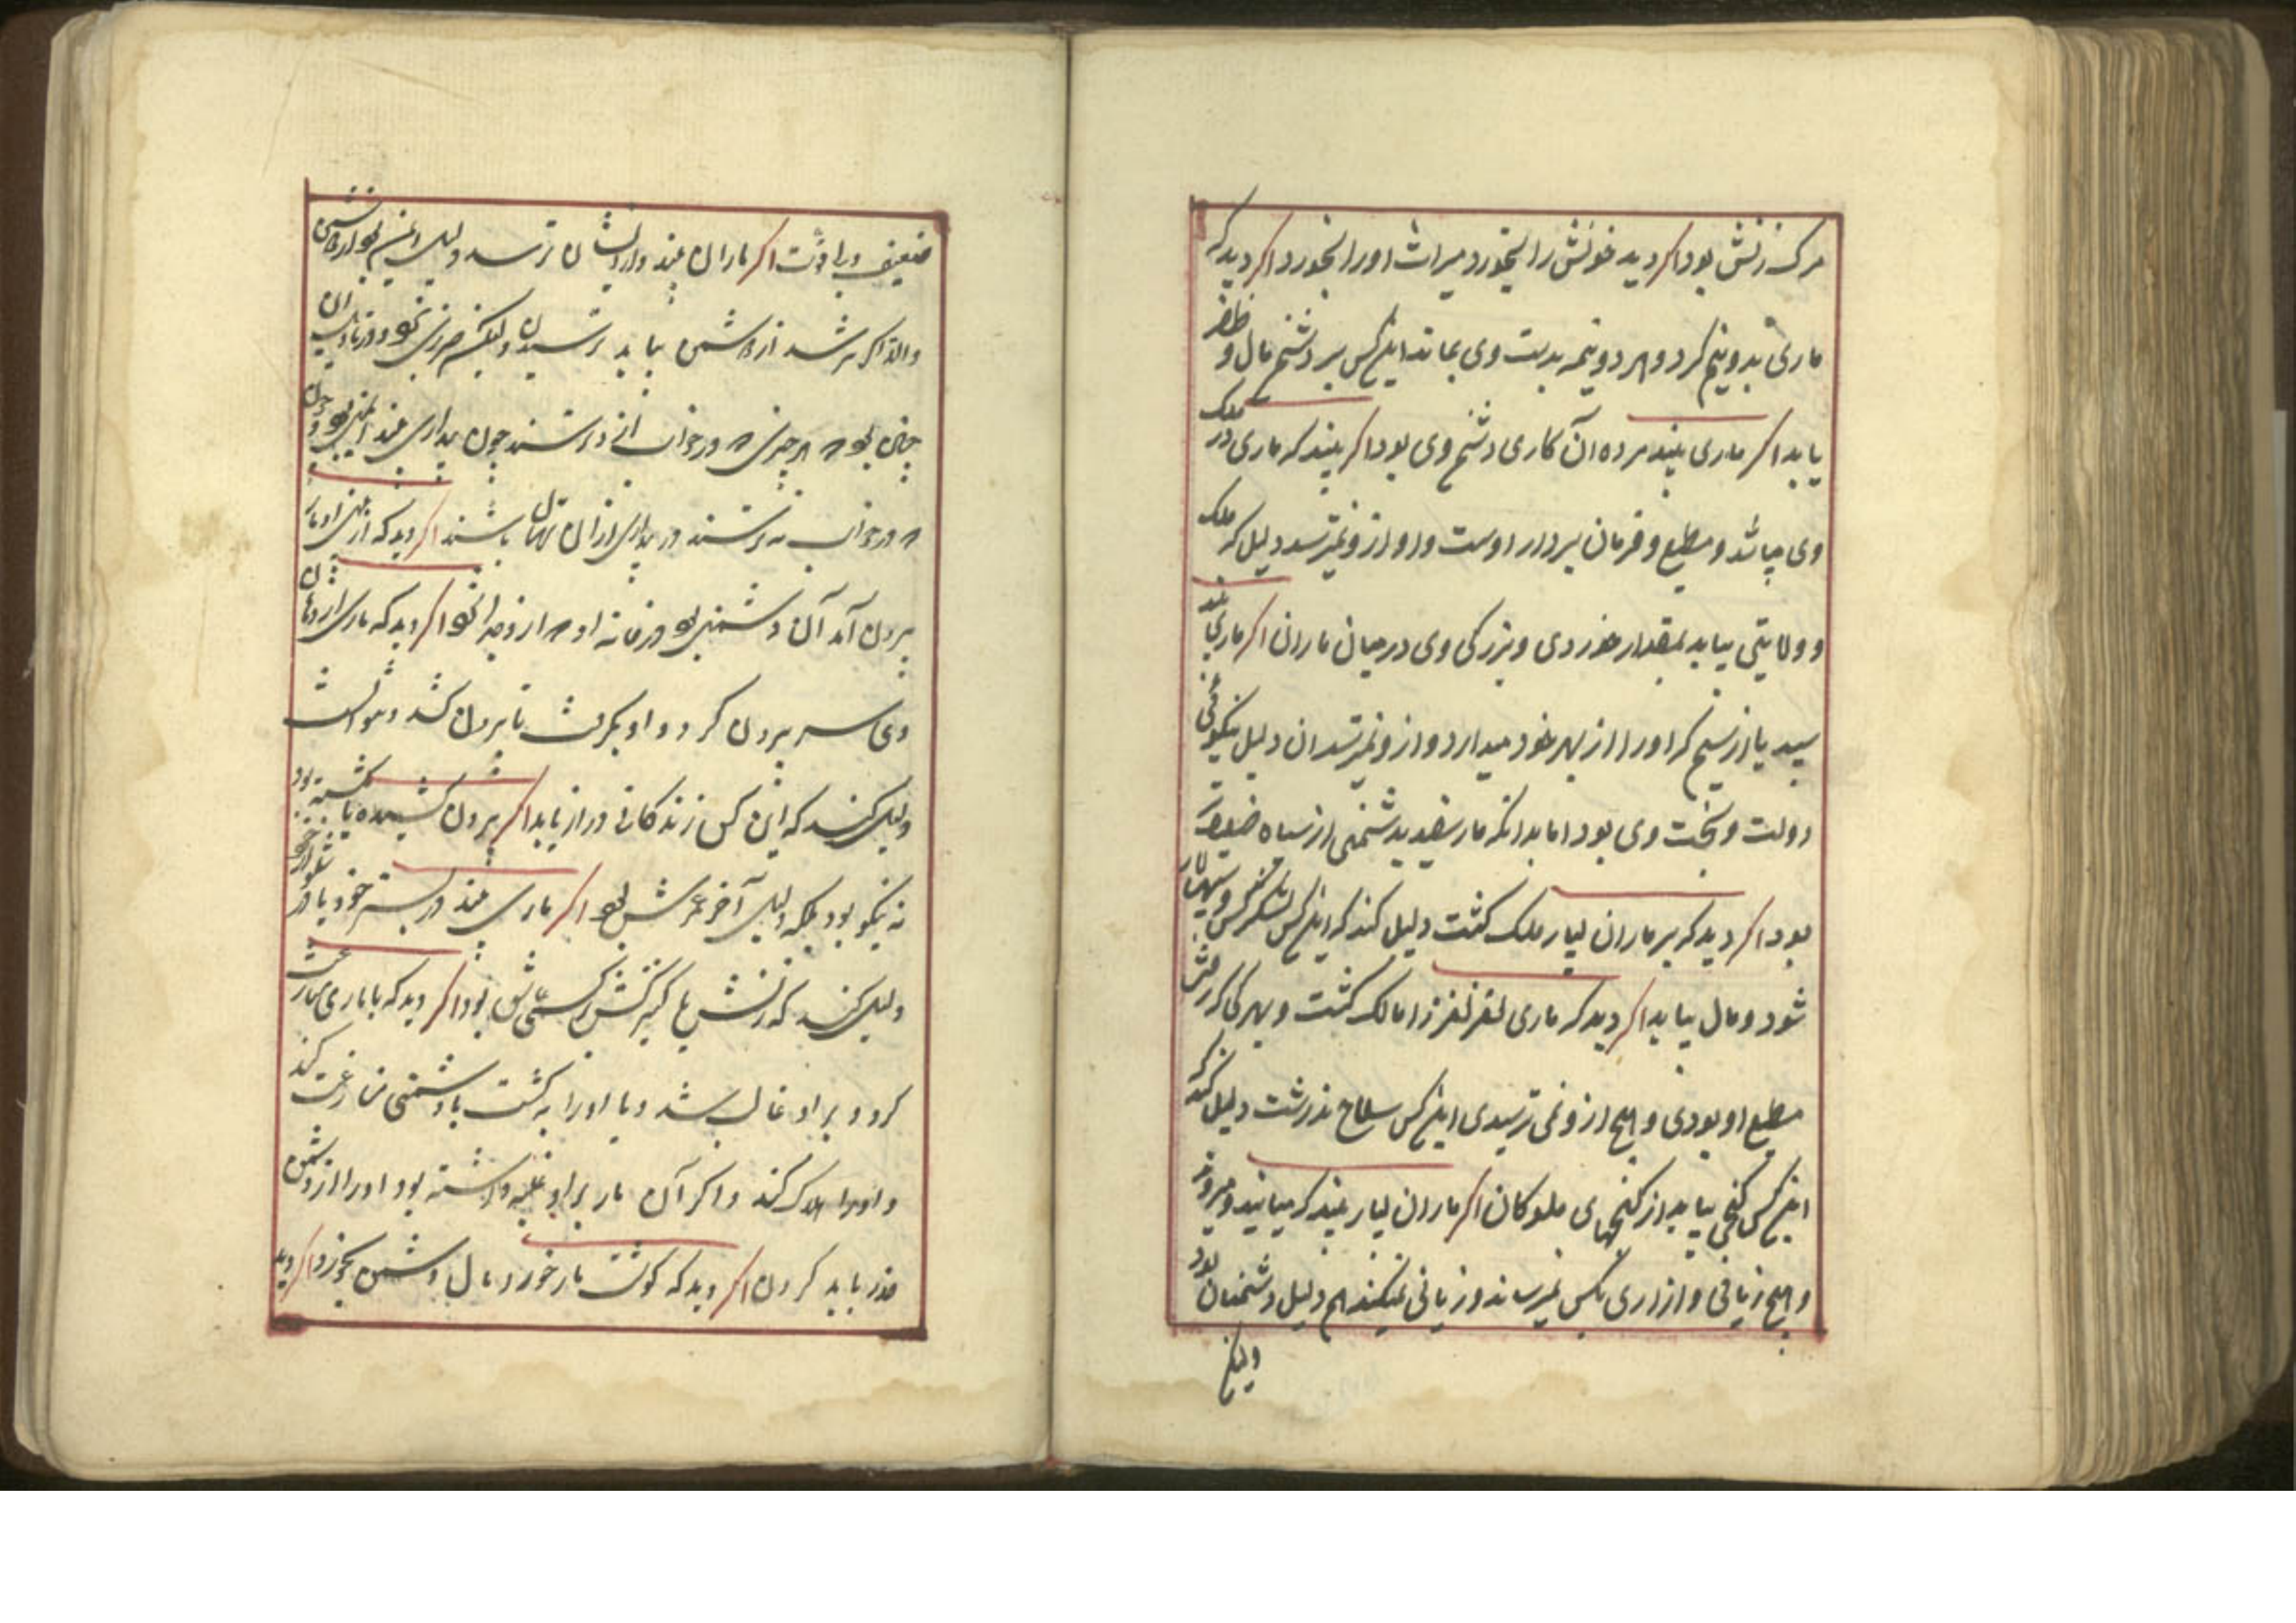 مرک زنش بود اکر دید خونش را بخورد میراث او را بخورد اکر دید که
ماری بدو نیم کرد و هر دو نیمه بدست وی بماند اینکس بر دشمن مال و ظفر
یابد اکر ماری بیند مرده آن کاری دشمن وی بود اکر بیند که ماری در ملک
وی می باشد و مطیع و فرمان بردار اوست و او از و نمیترسد دلیل که ملک
و ولایتی بیابد بمقدار خوردی و بزرکی وی در میان ماران اکر ماری بیند
سپید یا از سیم که او را از بهر خود میدارد و از و نمیترسد ان دلیل نیکوئی
دولت و بخت وی بود اما بدانکه مار سفید بدشمنی از سیاه ضعیفتر
بود اکر دید که بر ماران بسیار ملک کشت دلیل کند که اینکس لشکر کش و
شود و مال بیابد اکر دید که ماری نغز نغز را مالک کشت و بهر کجا که رفتی
مطیع او بودی و هیچ از و نمی ترسیدی اینکس سلاح نذرشت دلیل کند که
اینکس کنجی بیابد از کنجهای ملوکان اکر ماران بسیار بیند که میایند و میروند
و هیچ زیانی و ازاری بکس نمیرساند و زیانی نمیکند هم دلیل دشمنان بود
ولیکن
ضعیف و بی قوت اکر ماران بیند و از ایشان ترسد دلیل ایمنی بود از دشمن
و الا اکر ترسد از دشمن بباید ترسیدن ولیکن ضرری نبود و در تاویل ان
چنان بود هر چیزی در خواب ازو ترسند چون بیداری بیند ایمنی بود و چون
در خواب نه ترسند در بیداری از ان ترسان باشند اکر دید که از بینی او مار
بیرون آمد آن دشمنی بود در خانه او از و جدا نبود اکر دید که ماری از دهان
وی سر بیرون کرد و او بکرفت تا بیرون کشد و نتوانست
دلیل کند که این کس زندکانی دراز یابد اکر بیرون کشیده یا کشته بود
نه نیکو بود بلکه دلیل آخر عمرش بود اکر ماری بیند در بستر خود یا در
دلیل کند که زنش یا کنیزکش بر کسی عاشق بود اکر دید که با ماری محاربت
کرد و بر او غالب شد و یا او را به کشت با دشمنی منازعت کند
و او را هلاک کند و اکر آن مار بر او غلبه داشته بود او را از دشمن
حذر باید کردن اکر دید که کوشت مار خورد مال دشمن بخورد و اکر دید